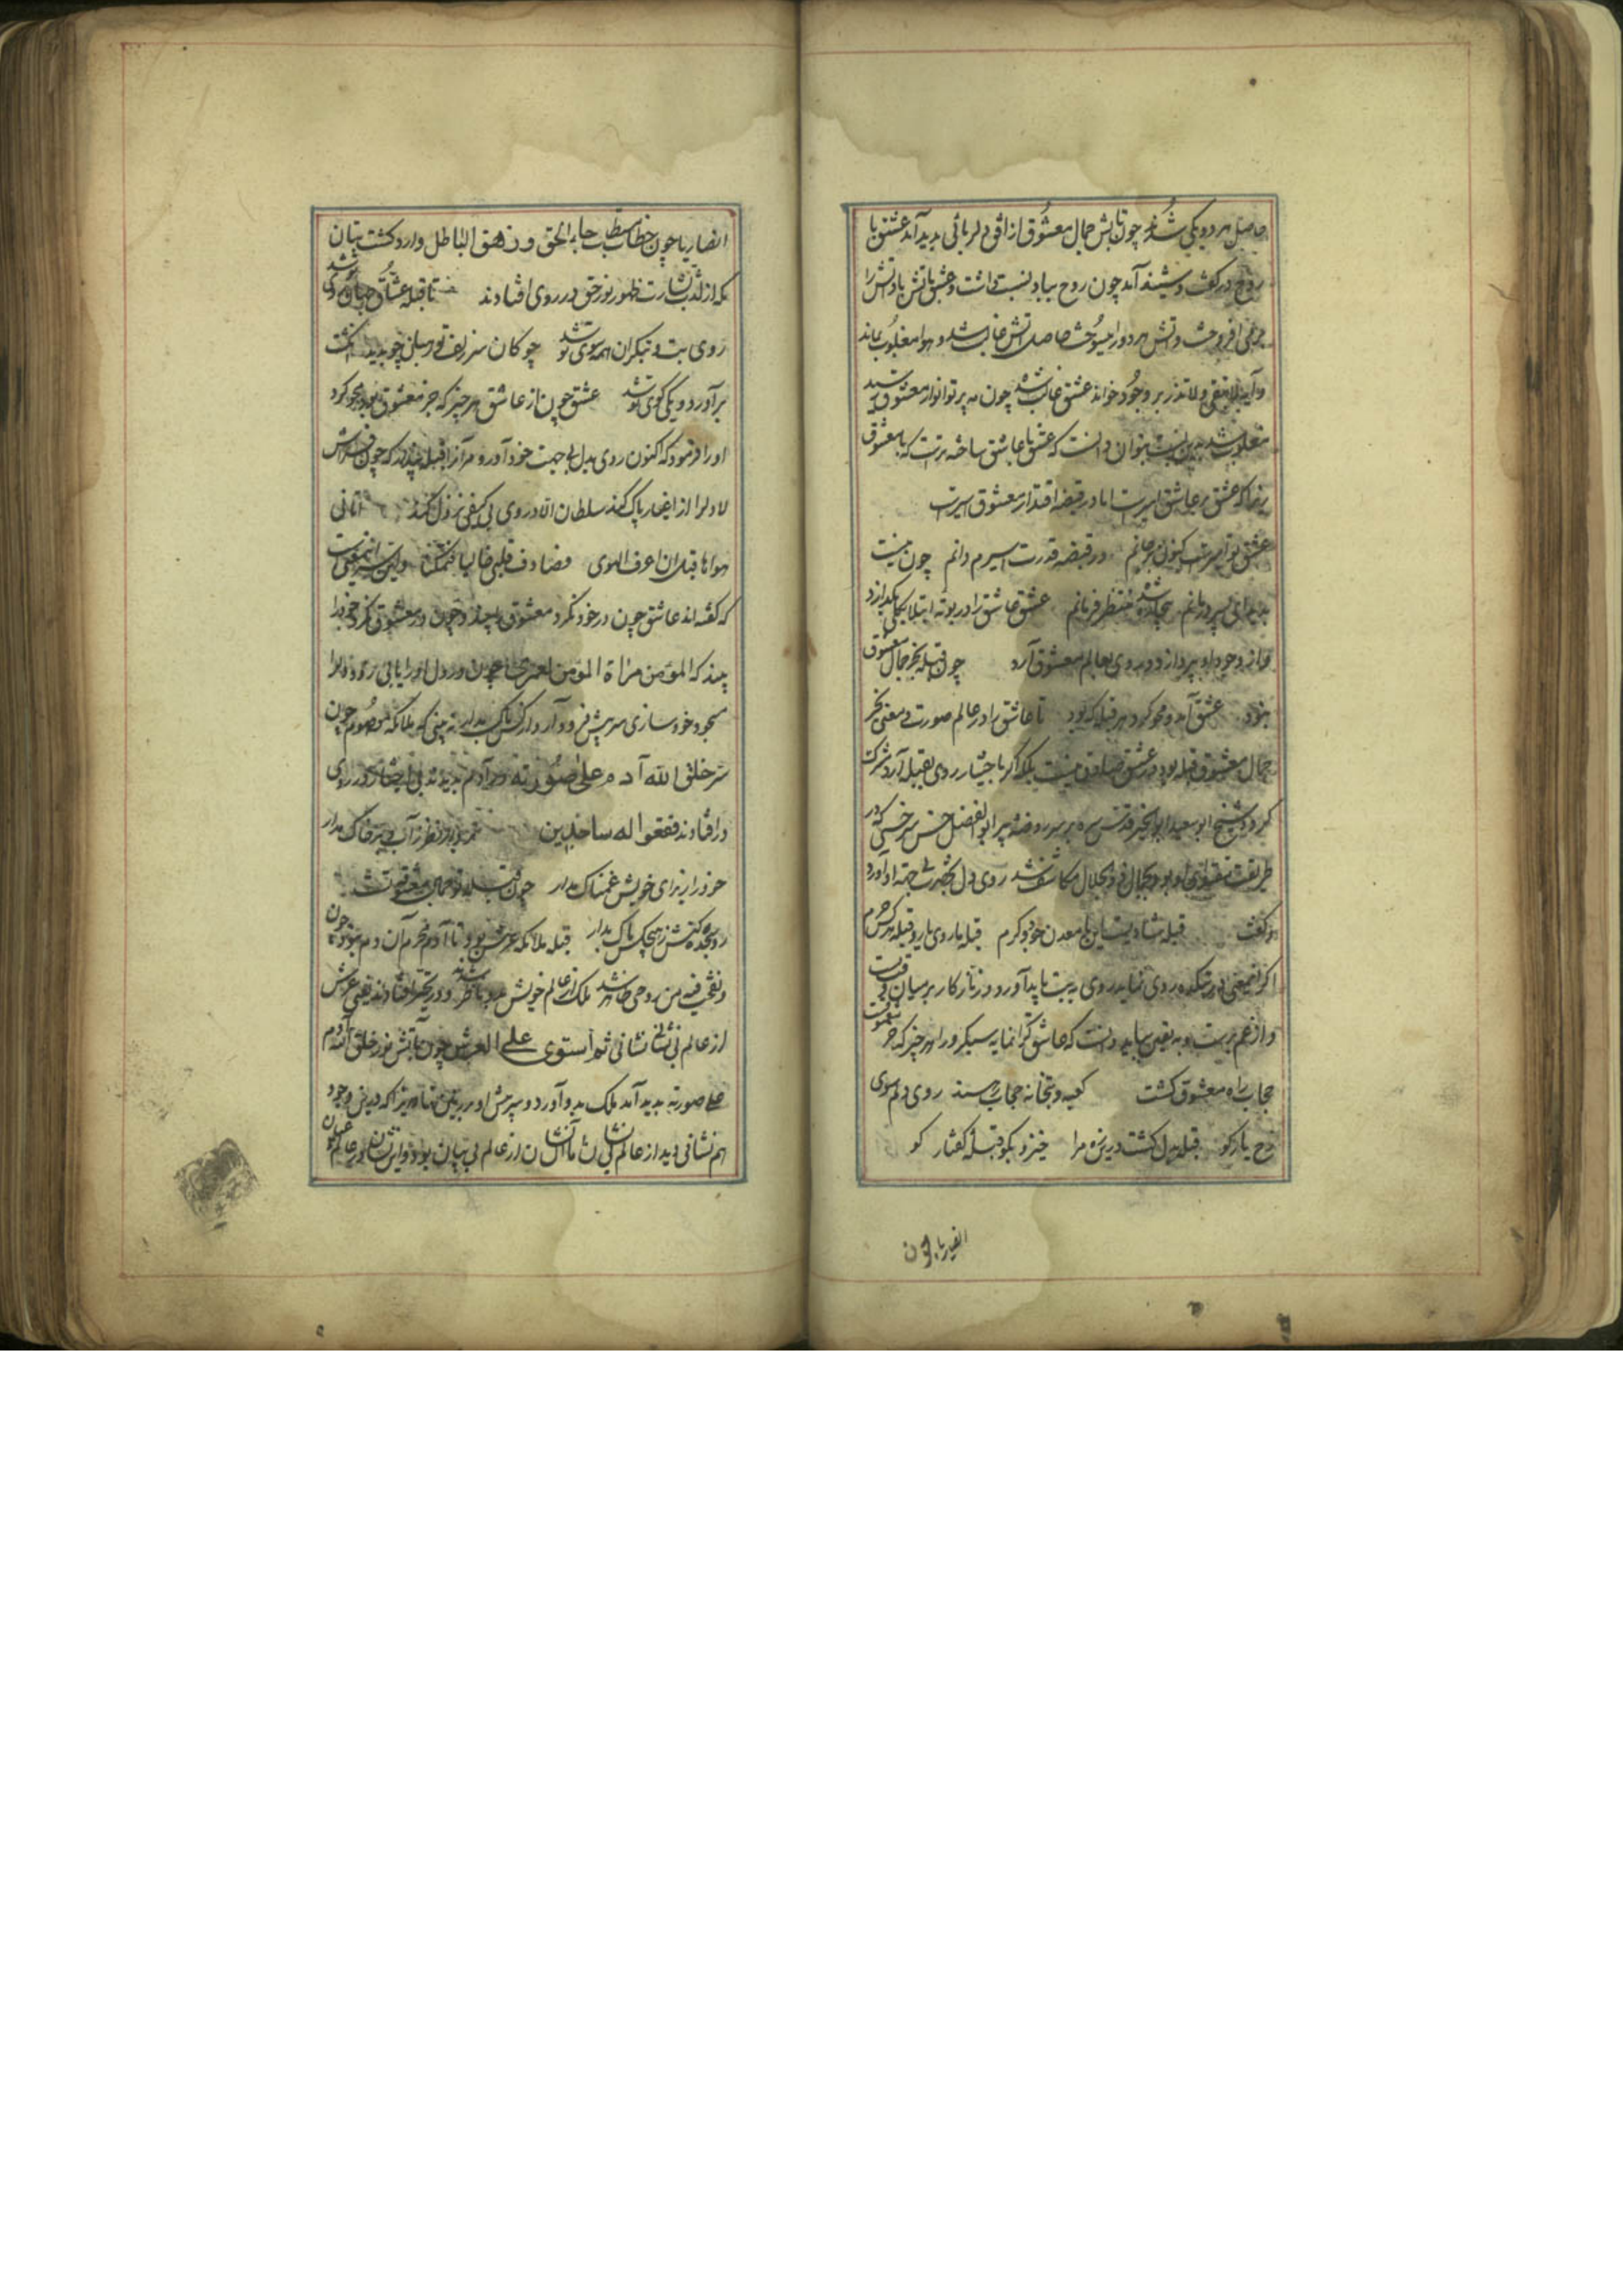 حاصل هر دو یکی شد چون تابش جمال معشوق از افق دلربائی پدید آید عشق با
روح در کشف و شیند آید چون روح بباد نسبت داشت و عشق باتش باد آتش را
بر می افروخت و آتش هر دو را میسوخت حاصل آتش غالب شد و هوا مغلوب ماند
و آیت لا تبقی و لا تذر بر وجود خواند عشق غالب شده چون به پرتو انوار معشوق رسید
مغلوب شد بدین نسبت بتوان دانست که عشق با عاشق ساخته ترست که با معشوق
زیرا که عشق بر عاشق امیرست اما در قبضه اقتدار معشوق اسیرست
عشق تو امیرست کنون بر جانم در قبضه قدرت اسیرم دانم چون نیست
پدید ای پسر درمانم منتظر فرمانم عشق عاشق را در بوته ابتلا بکلی بگدازد
چون از وجود او بپردازد روی بعالم معشوق آرد چون قبله بجز جمال معشوق
نبود عشق آمد و محو کرد هر قبله که بود تا عاشق را در عالم صورت و معنی بجز
جمال معشوق قبله بود در عشق صادق نیست بلکه اگر باختیار روی بقبله آرد مشرکت
گردد شیخ ابو سعید ابو الخیر قدس سره بر سر روضه پیر ابو الفضل حسن سرخسی که در
طریقت مقتدای او بود بجمال ذو الجلال مکاشف شد روی دل بحضرت بی جهته او آورد
و گفت قبله شادیست این با معدن جود و کرم قبله ما روی یار و قبله هر کس حرم
اگر این معنی در بتکده روی نماید روی به بت باید آورد و زنار کار بر میان وقت بست
و از غم برست و به یقین بباید دانست که عاشق گرانمایه سبکرو را هر چیز که جز معشوقست
حجاب راه معشوق گشت کعبه و بتخانه حجاب رهست روی دلم سوی
رخ یار کو قبله دل گشت درین ره مرا خیز و بگو قبله گفتار کو
انصار یا چون
انصار یا چون خطاب مستطاب جاء الحق و زهق الباطل وارد گشت بتان
مکه از لذت بشارت ظهور نور حق در روی افتادند تا قبله عشاق جهان روی تو شد
روی بت و بتگران همه سوی تو شد چوگان سر زلف تو را میل چو دید انگشت
بر آورد و یکی گوی تو شد عشق چون از عاشق هر چیز که جز معشوق بود محو کرد
او را فرمود که اکنون روی بدل بی جهت خود آور و مر آنرا قبله پندار که چون فراش
لا دل را از اغیار پاک کند سلطان الا در وی بی کیفی نزول کند اتانی
هواها قبل ان اعرف الهوی فصادف قلبی خالیا فتمکنا و این سر آنمعنیست
که گفته اند عاشق چون در خود نگرد معشوق را بیند و چون در معشوق نگرد خود را
بیند که المؤمن مراة المؤمن لعمری چون در دل او را یابی روی دل را
مسجود خود سازی سر پیش فرود آر و از کس باک مدار نه بینی که ملائکه معصوم چون
سر خلق الله آدم علی صورته در آدم بدیدند بی اختیار در روی
در افتادند فقعوا له ساجدین نظر ز آب و بر خاک مدار
خود را ز برای خویش غمناک مدار چون قبله تو جمال معشوقه تست
رو سجده کنش ز هیچکس باک مدار قبله ملائکه عرش بود تا آدم محرم آن دم نبود چون
و نفخت فیه من روحی ظاهر شد ملک از عالم خویش بدو ناظر شد و در تحیر افتادند یعنی عرش
از عالم بی نشانی نشانی ثم استوی علی العرش چون تابش نور خلق الله آدم
علی صورته پدید آمد ملک بدو آورد و پرستش او بر یقین زیرا که درین وجود
هم نشانی دید از عالم بی نشان اما آن نشان از عالم بی بیان بود و این نشان در عالم عیان بود